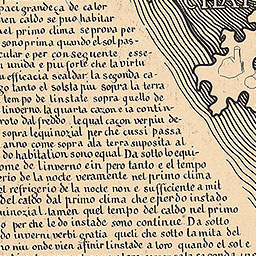 paci grandeça de calor
en caldo se puo habitar
nel primo clima se prova per
sono prima quando el sol pas
cular e per con seguente esse
n unida e piu forte che la virtu
u efficacia scaldar. la segonda ca
go tanto el sol sta piu sopra la terra
tempo de linstate sopra quello de
linverno. la quarta caxon e la contin
roto dal freddo. lequal caçon ver piu de
sopra lequinozial per che cussi passa
anno come sopra ala terra suposita al
do habitation sono equal. Da soto lo equi
ome de linverno e in pero tanto e el tempo
erio de la nocte. veramente nel primo clima
el refrigerio de la nocte non e sufficiente a mit
del caldo dal primo clima che e perdo instado
uinozial. tamen quel tempo del caldo nel primo
no per che le do instade sono continue. Da soto
do inverni. verbi gratia queli che soto la mita del
no niu onde vien a finir linstade a loro quando el sol e
CHAT